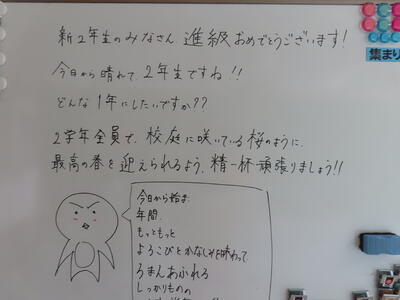 新2年生のみなさん、進級おめでとうございます!
集まり
今日から晴れて、2年生ですね!!
どんな1年にしたいですか??
2学年全員で、校庭に咲いている桜のように、
最高の春を迎えられるよう、精一杯頑張りましょう!!
今日から始ま
年間、
もっともっと
よろこびとかなしみを味わって
ろまんあふれる
しっかりものの